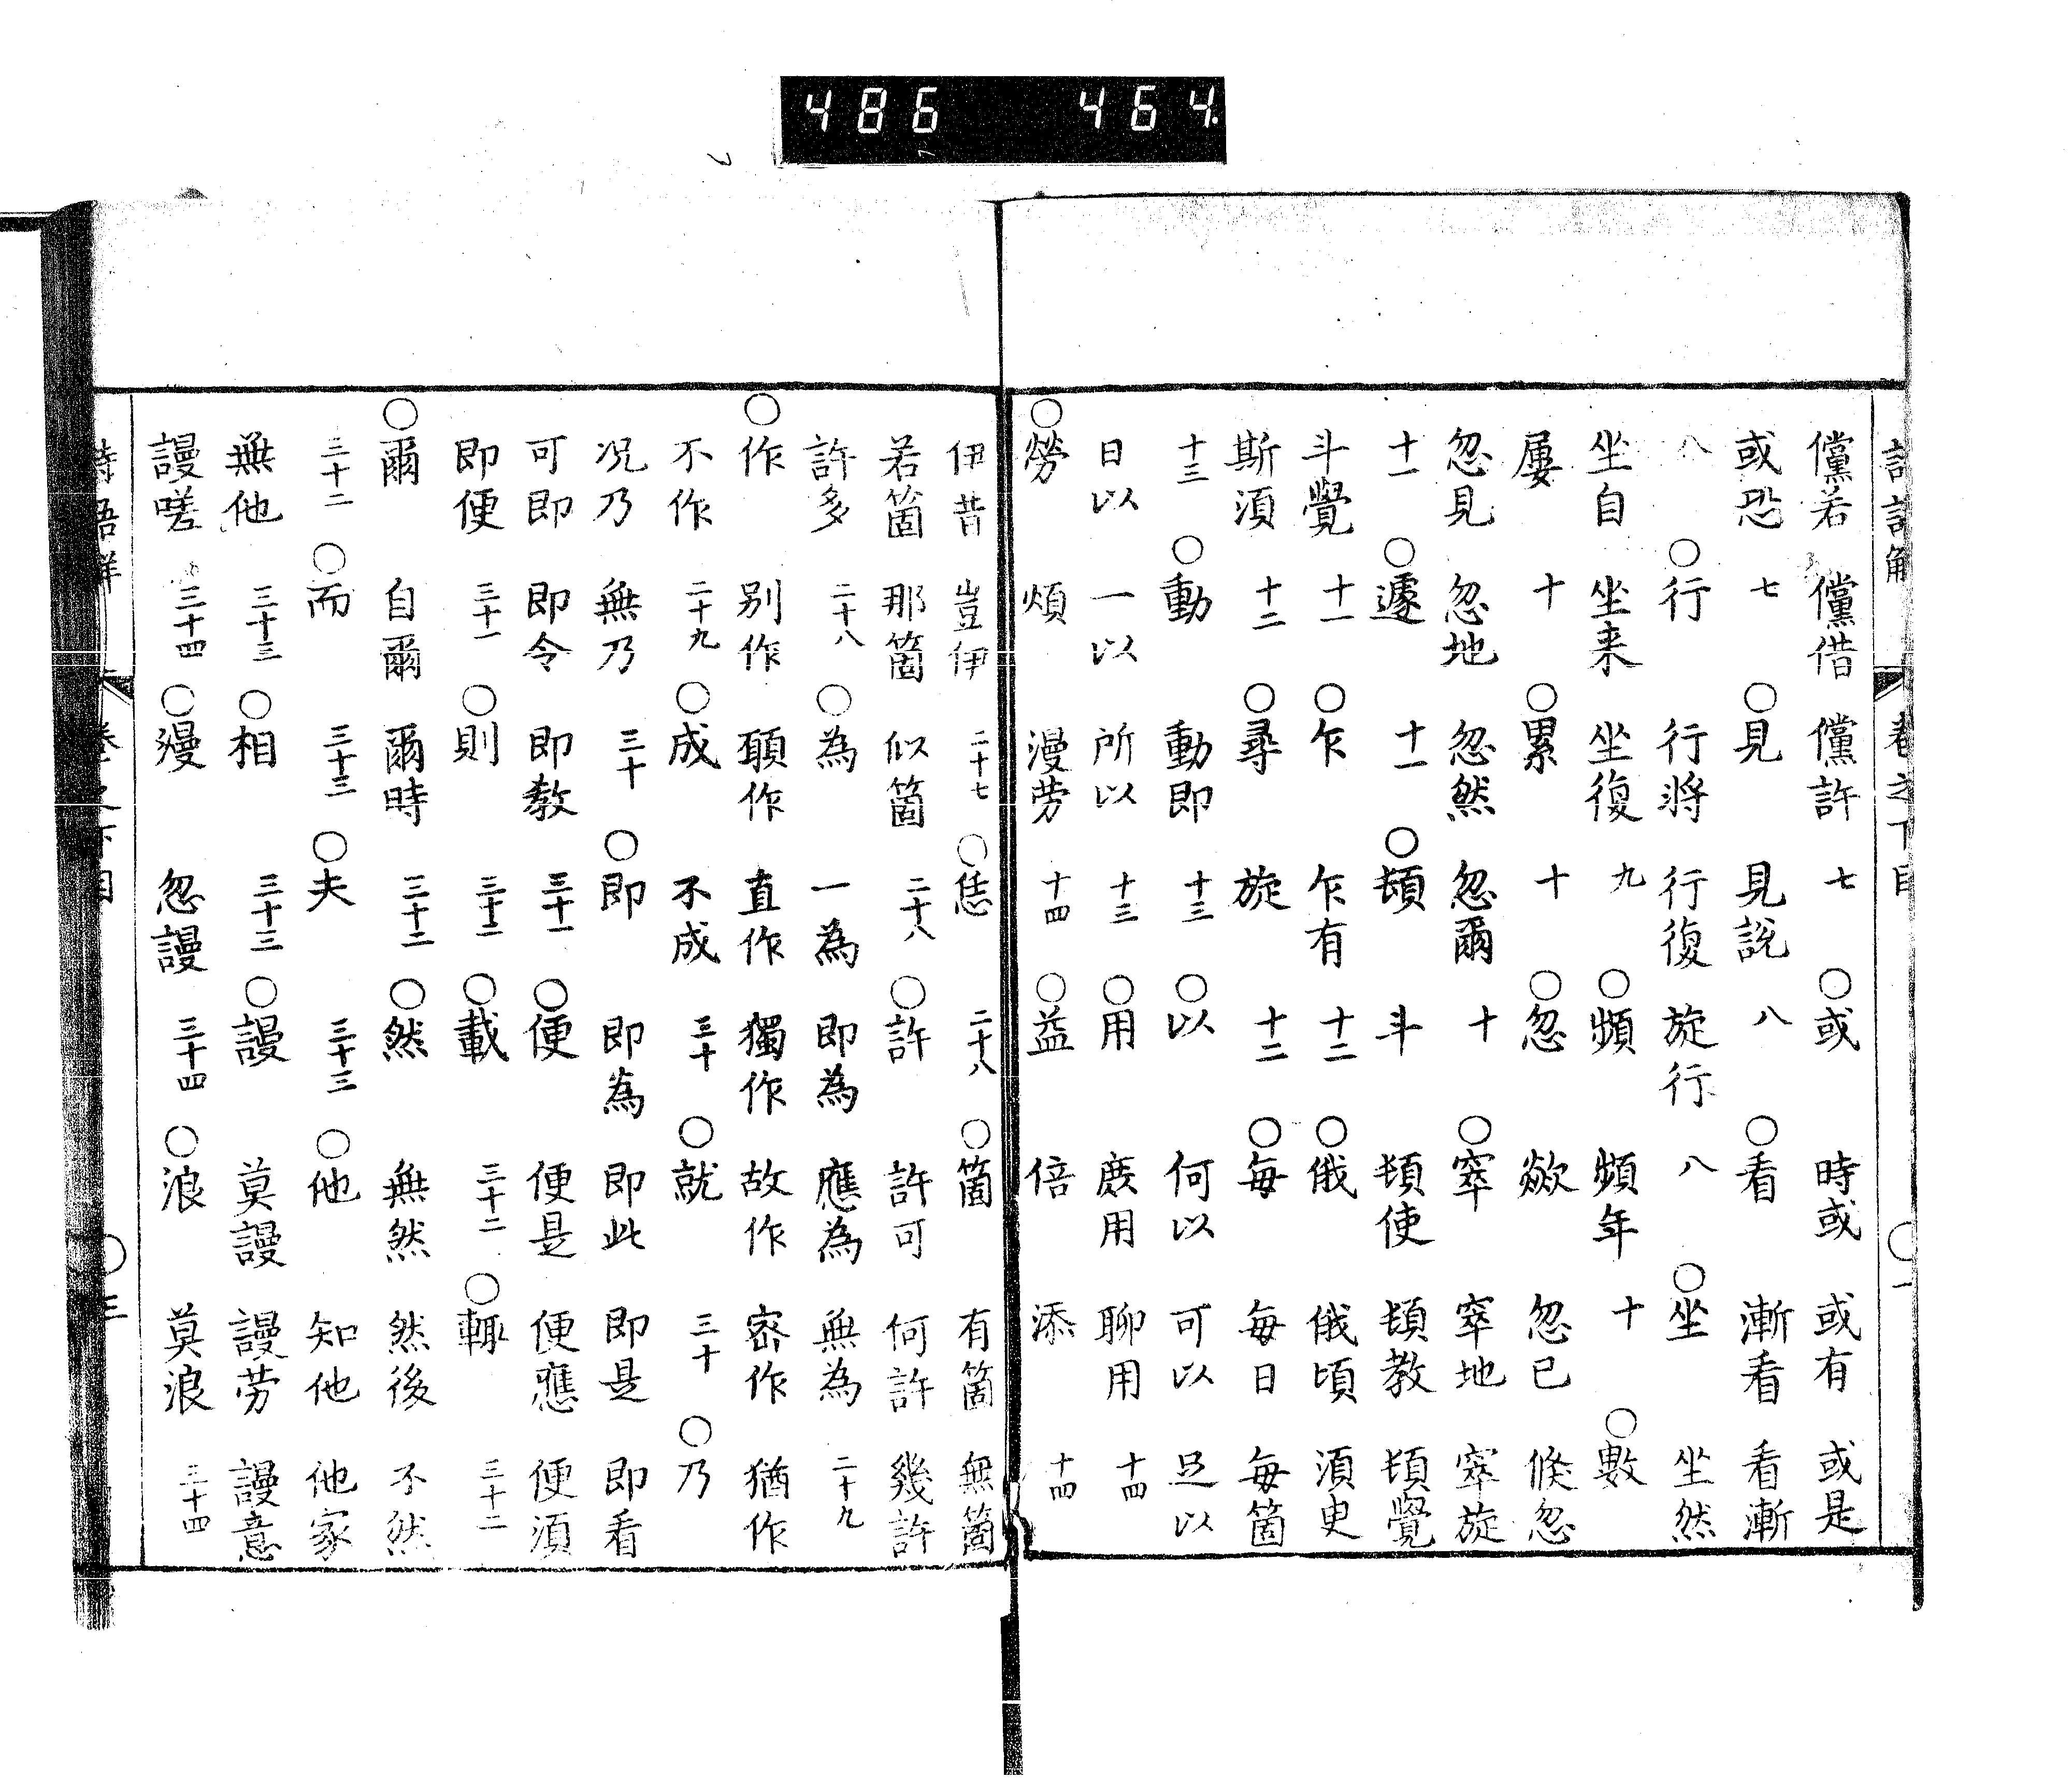 486 464.
儻若 儻借 儻許 七 ○或 時或 或有 或是
或恐 七 ○見 見説 八 ○看 漸看 看漸
八 ○行 行将 行復 旋行 八 ○坐 坐然
坐自 坐来 坐復 九 ○頻 頻年 十 ○數
屢 十 ○累 十 ○忽 歘 忽已 倏忽
忽見 忽地 忽然 忽爾 十 ○窣 窣地 窣旋
十一 ○遽 十一 ○頓 斗 頓使 頓教 頓覺
斗覺 十一 ○乍 乍有 十二 ○俄 俄頃 須臾
斯須 十二 ○尋 旋 十二 ○每 每日 每箇
十三 ○動 動即 十三 ○以 何以 可以 足以
日以 一以 所以 十三 ○用 廢用 聊用 十四
○勞 煩 漫劳 十四 ○益 倍 添 十四
伊昔 豈伊 二十七 ○恁 二十八 ○箇 有箇 無箇
若箇 那箇 似箇 二十八 ○許 許可 何許 幾許
許多 二十八 ○為 一為 即為 應為 無為 二十九
○作 别作 願作 直作 獨作 故作 密作 猶作
不作 二十九 ○成 不成 三十 ○就 三十 ○乃
况乃 無乃 三十 ○即 即為 即此 即是 即看
可即 即令 即教 三十一 ○便 便是 便應 便須
即便 三十一 ○則 三十二 ○載 三十二 ○輙 三十二
○爾 自爾 爾時 三十二 ○然 無然 然後 不然
三十二 ○而 三十三 ○夫 三十三 ○他 知他 他家
無他 三十三 ○相 三十三 ○謾 莫謾 謾劳 謾意
謾嗟 三十四 ○漫 忽謾 三十四 ○浪 莫浪 三十四
詩語解 卷之下目 ○三